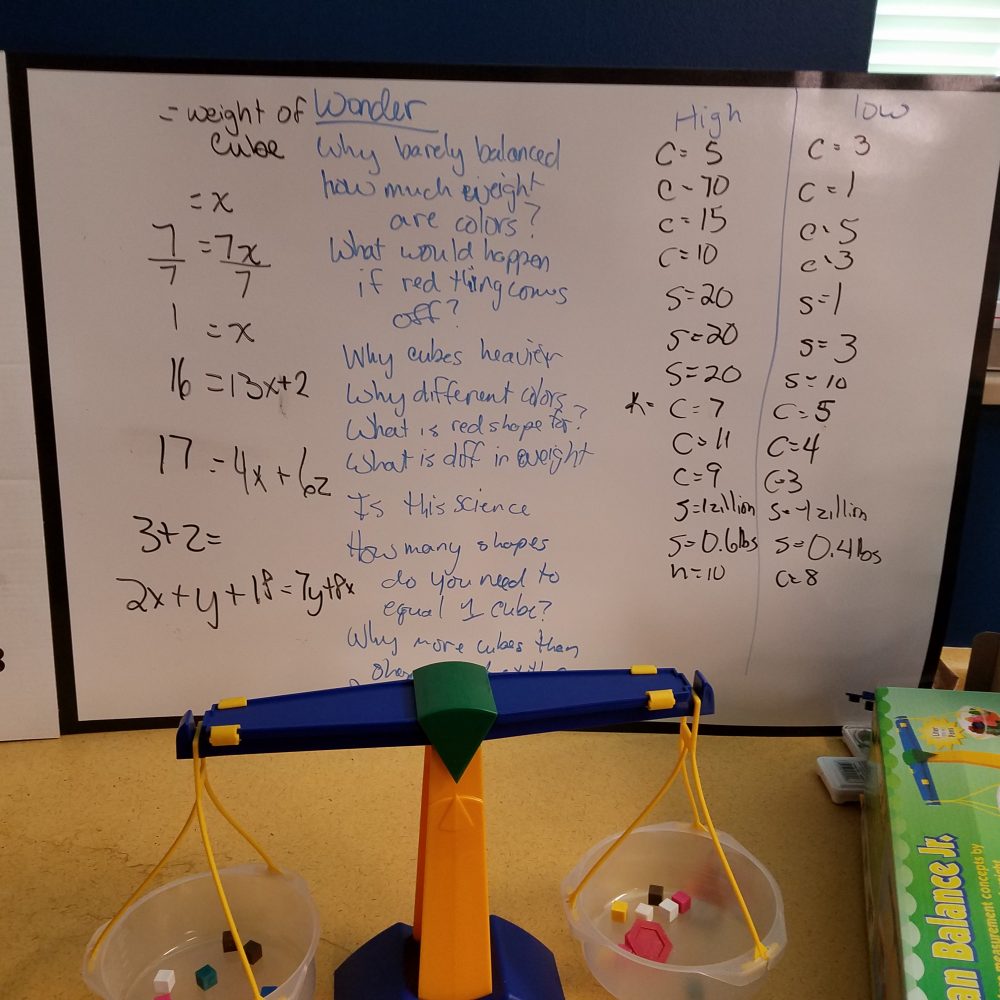 = weight of
cube
= x
7/7 = 7x/7
1 = x
16 = 13x+2
17 = 4x + 6z
3+2=
2x+y+18=7y+8x
Wonder
Why barely balanced
how much weight
are colors?
What would happen
if red thing comes
off?
Why cubes heavier
Why different colors
What is red shape for?
What is diff in weight
Is this science
How many shapes
do you need to
equal 1 cube?
Why more cubes than
High
C= 5
C= 70
C= 15
C= 10
S=20
S=20
S=20
C= 7
C= 11
C= 9
S=1zillion
S=0.6lbs
h=10
low
C= 3
C= 1
C= 5
C= 3
S=1
S= 3
S= 10
C= 5
C=4
C=3
S=-1zillion
S=0.4lbs
C=8
an Balance Jr.
measurement concepts by